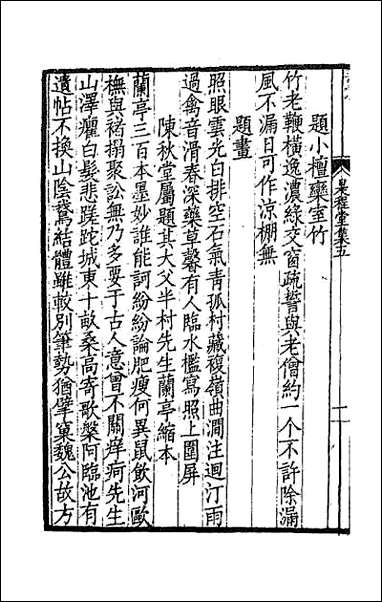 題小檀欒室竹
竹老鞭橫逸濃綠交窗疏誓與老僧約一个不許除漏
風不漏日可作涼棚無
題畫
照眼雲光白排空石氣青孤村藏複嶺曲澗注迴汀雨
過禽音滑春深藥草馨有人臨水檻寫照上圍屏
陳秋堂屬題其大父半村先生蘭亭縮本
蘭亭三百本墨妙誰能訶紛紛論肥瘦何異鼠飲河歐
橅與褚搨聚訟無乃多要于古人意會不關痒疴先生
山澤癯白髮悲蹉跎城東十畝桑高寄歌槃阿臨池有
遺帖不換山陰鵞結體雖敧別筆勢猶擘窠魏公故方
是程堂集五
二